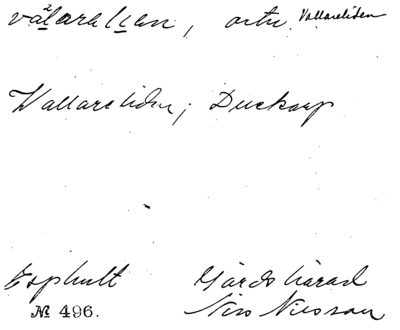 välarelien, ortn. Vallareliden
Vallareliden; Duckarp
Esphult Gärds härad
№ 496. Nils Nilsson